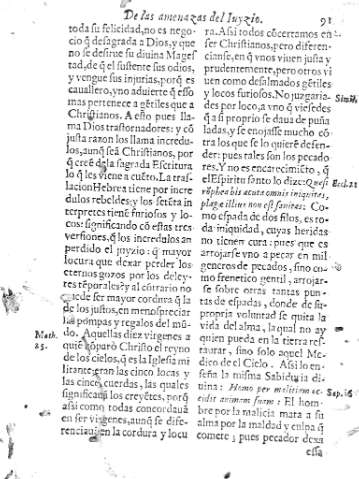 De las amenazas del Iuyzio. 91
toda su felicidad, no es nego-
cio q̃ desagrada a Dios, y que
no se desirue su diuina Mages
tad, de q̃ el sustente sus odios,
y vengue sus injurias, porq̃ es
cauallero, y no aduierte q̃ esso
mas pertenece a gẽtiles que a
Christianos. A esto pues lla-
ma Dios trastornadores: y cõ
justa razon los llama incredu-
los, aunq̃ seã Christianos, por
q̃ creẽ de la sagrada Escritura
lo q̃ les viene a cuẽto. La tras-
lacion Hebrea tiene por incre
dulos rebeldes: y los setẽta in
terpretes tienẽ furiosos y lo-
cos: significando cõ estas tres
versiones, q̃ los incredulos an
perdido el juyzio: q̃ mayor
locura que dexar perder los
eternos gozos por los deley-
tes tẽporales? y al cõtrario no
puede ser mayor cordura q̃ la
de los justos, en menospreciar
las pompas y regalos del mũ-
do. Aquellas diez virgenes a
quiẽ cõparò Christo el reyno
de los cielos, q̃ es la Iglesia mi
litante: eran las cinco locas y
las cinco cuerdas, las quales
significan los creyẽtes, porq̃
assi como todas concordauã
en ser virgenes, aunq̃ se dife-
renciauã en la cordura y locu
Math.
25.
ra. Assi todos cõcertamos en
ser Christianos, pero diferen-
cianse, en q̃ vnos viuen justa y
prudentemente, pero otros vi
uen como desalmados gẽtiles
y locos furiosos. No juzgaria-
des por loco, a vno q̃ viesedes
q̃ a si proprio se daua de puña
ladas, y se enojasse mucho cõ-
tra los que se lo quierẽ defen-
der: pues tales son los pecado
res. Y no es encarecimiẽto, q̃
el Espiritu santo lo dize: Quasi
rõphea bis acuta omnis iniquitas,
plagæ illius non est sanitas: Co-
mo espada de dos filos, es to-
da iniquidad, cuyas heridas
no tienen cura: pues que es
arrojarse vno a pecar en mil
generos de pecados, sino co-
mo frenetico gentil, arrojar-
se sobre otras tantas pun-
tas de espadas, donde de su
propria voluntad se quita la
vida del alma, la qual no ay
quien pueda en la tierra res-
taurar, sino solo aquel Me-
dico de el Cielo. Assi lo en-
seña la misma Sabiduria di-
uina: Homo per malitiam oc-
cidit animam suam: El hom-
bre por la malicia mata a su
alma por la maldad y culpa q̃
comete; pues pecador dexa
essa
Simil.
Eccl. 21
Sap. 16